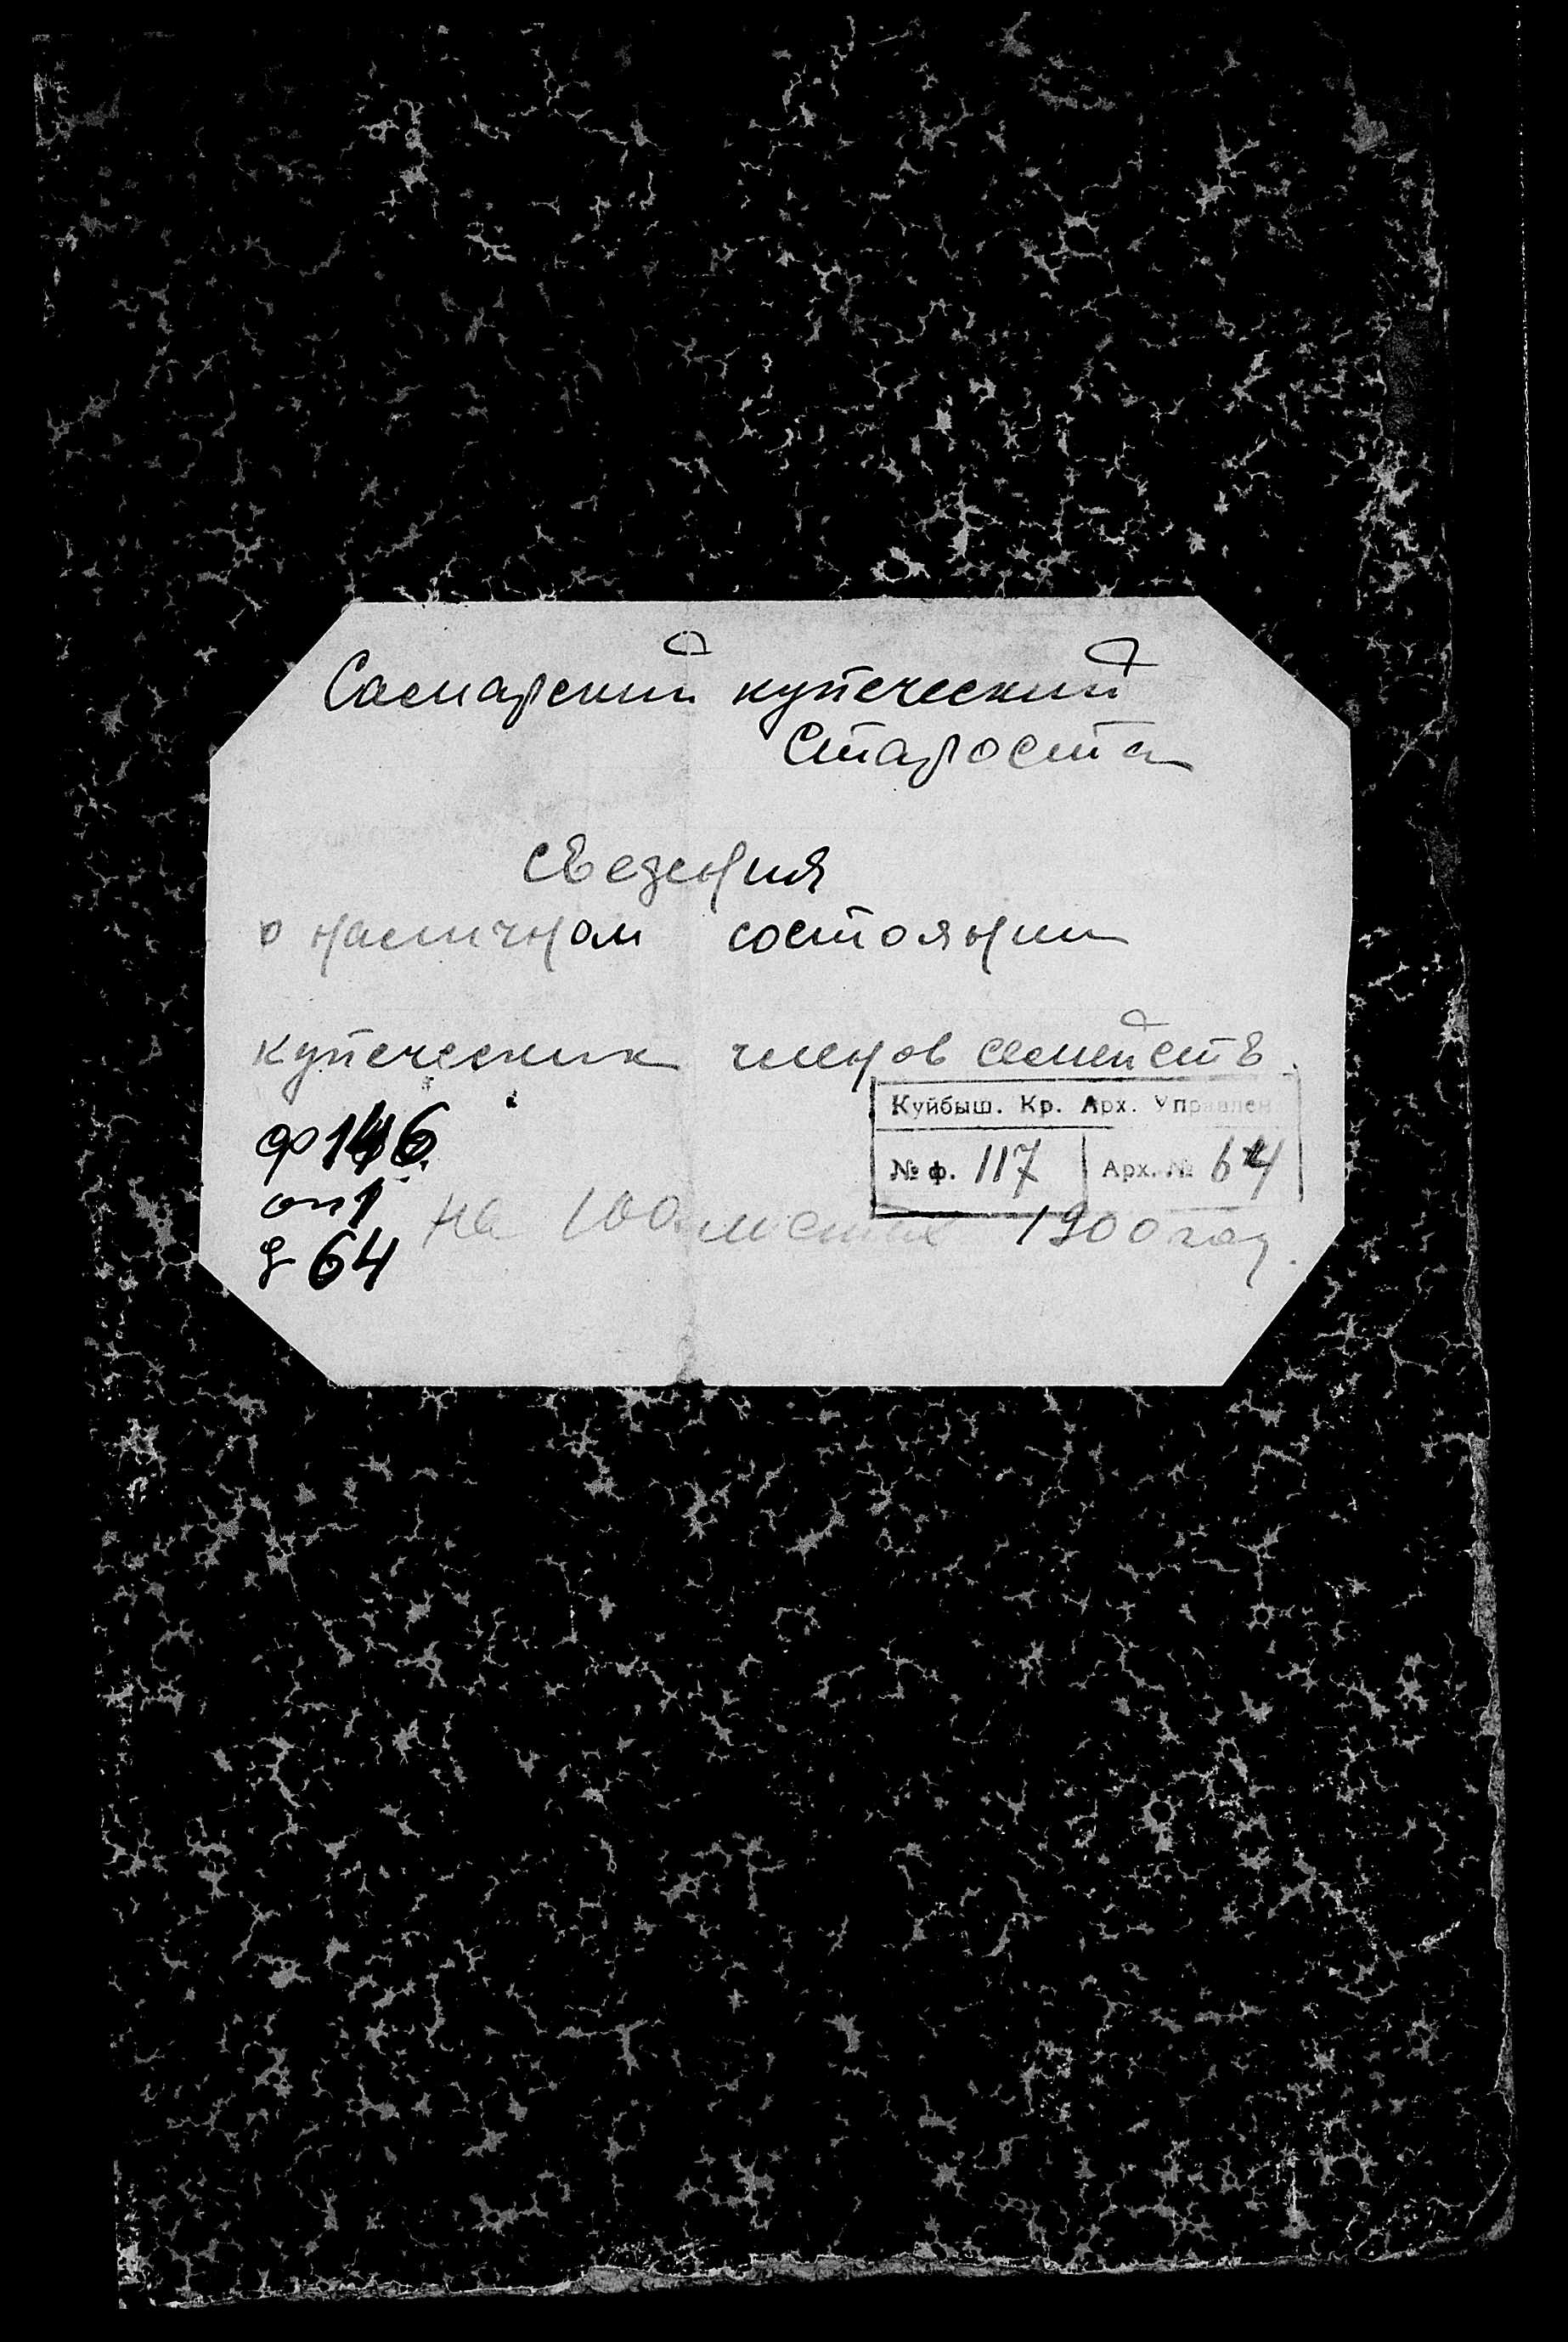 Самарский купеческий
Староста
Сведения
о наличном состоянии
купеческих членов семейств.
Куйбыш. Кр. Арх. Управлен
№ ф. 117 Арх. № 64
ф 146.
оп 1
д 64
на 100 листах 1900 год.